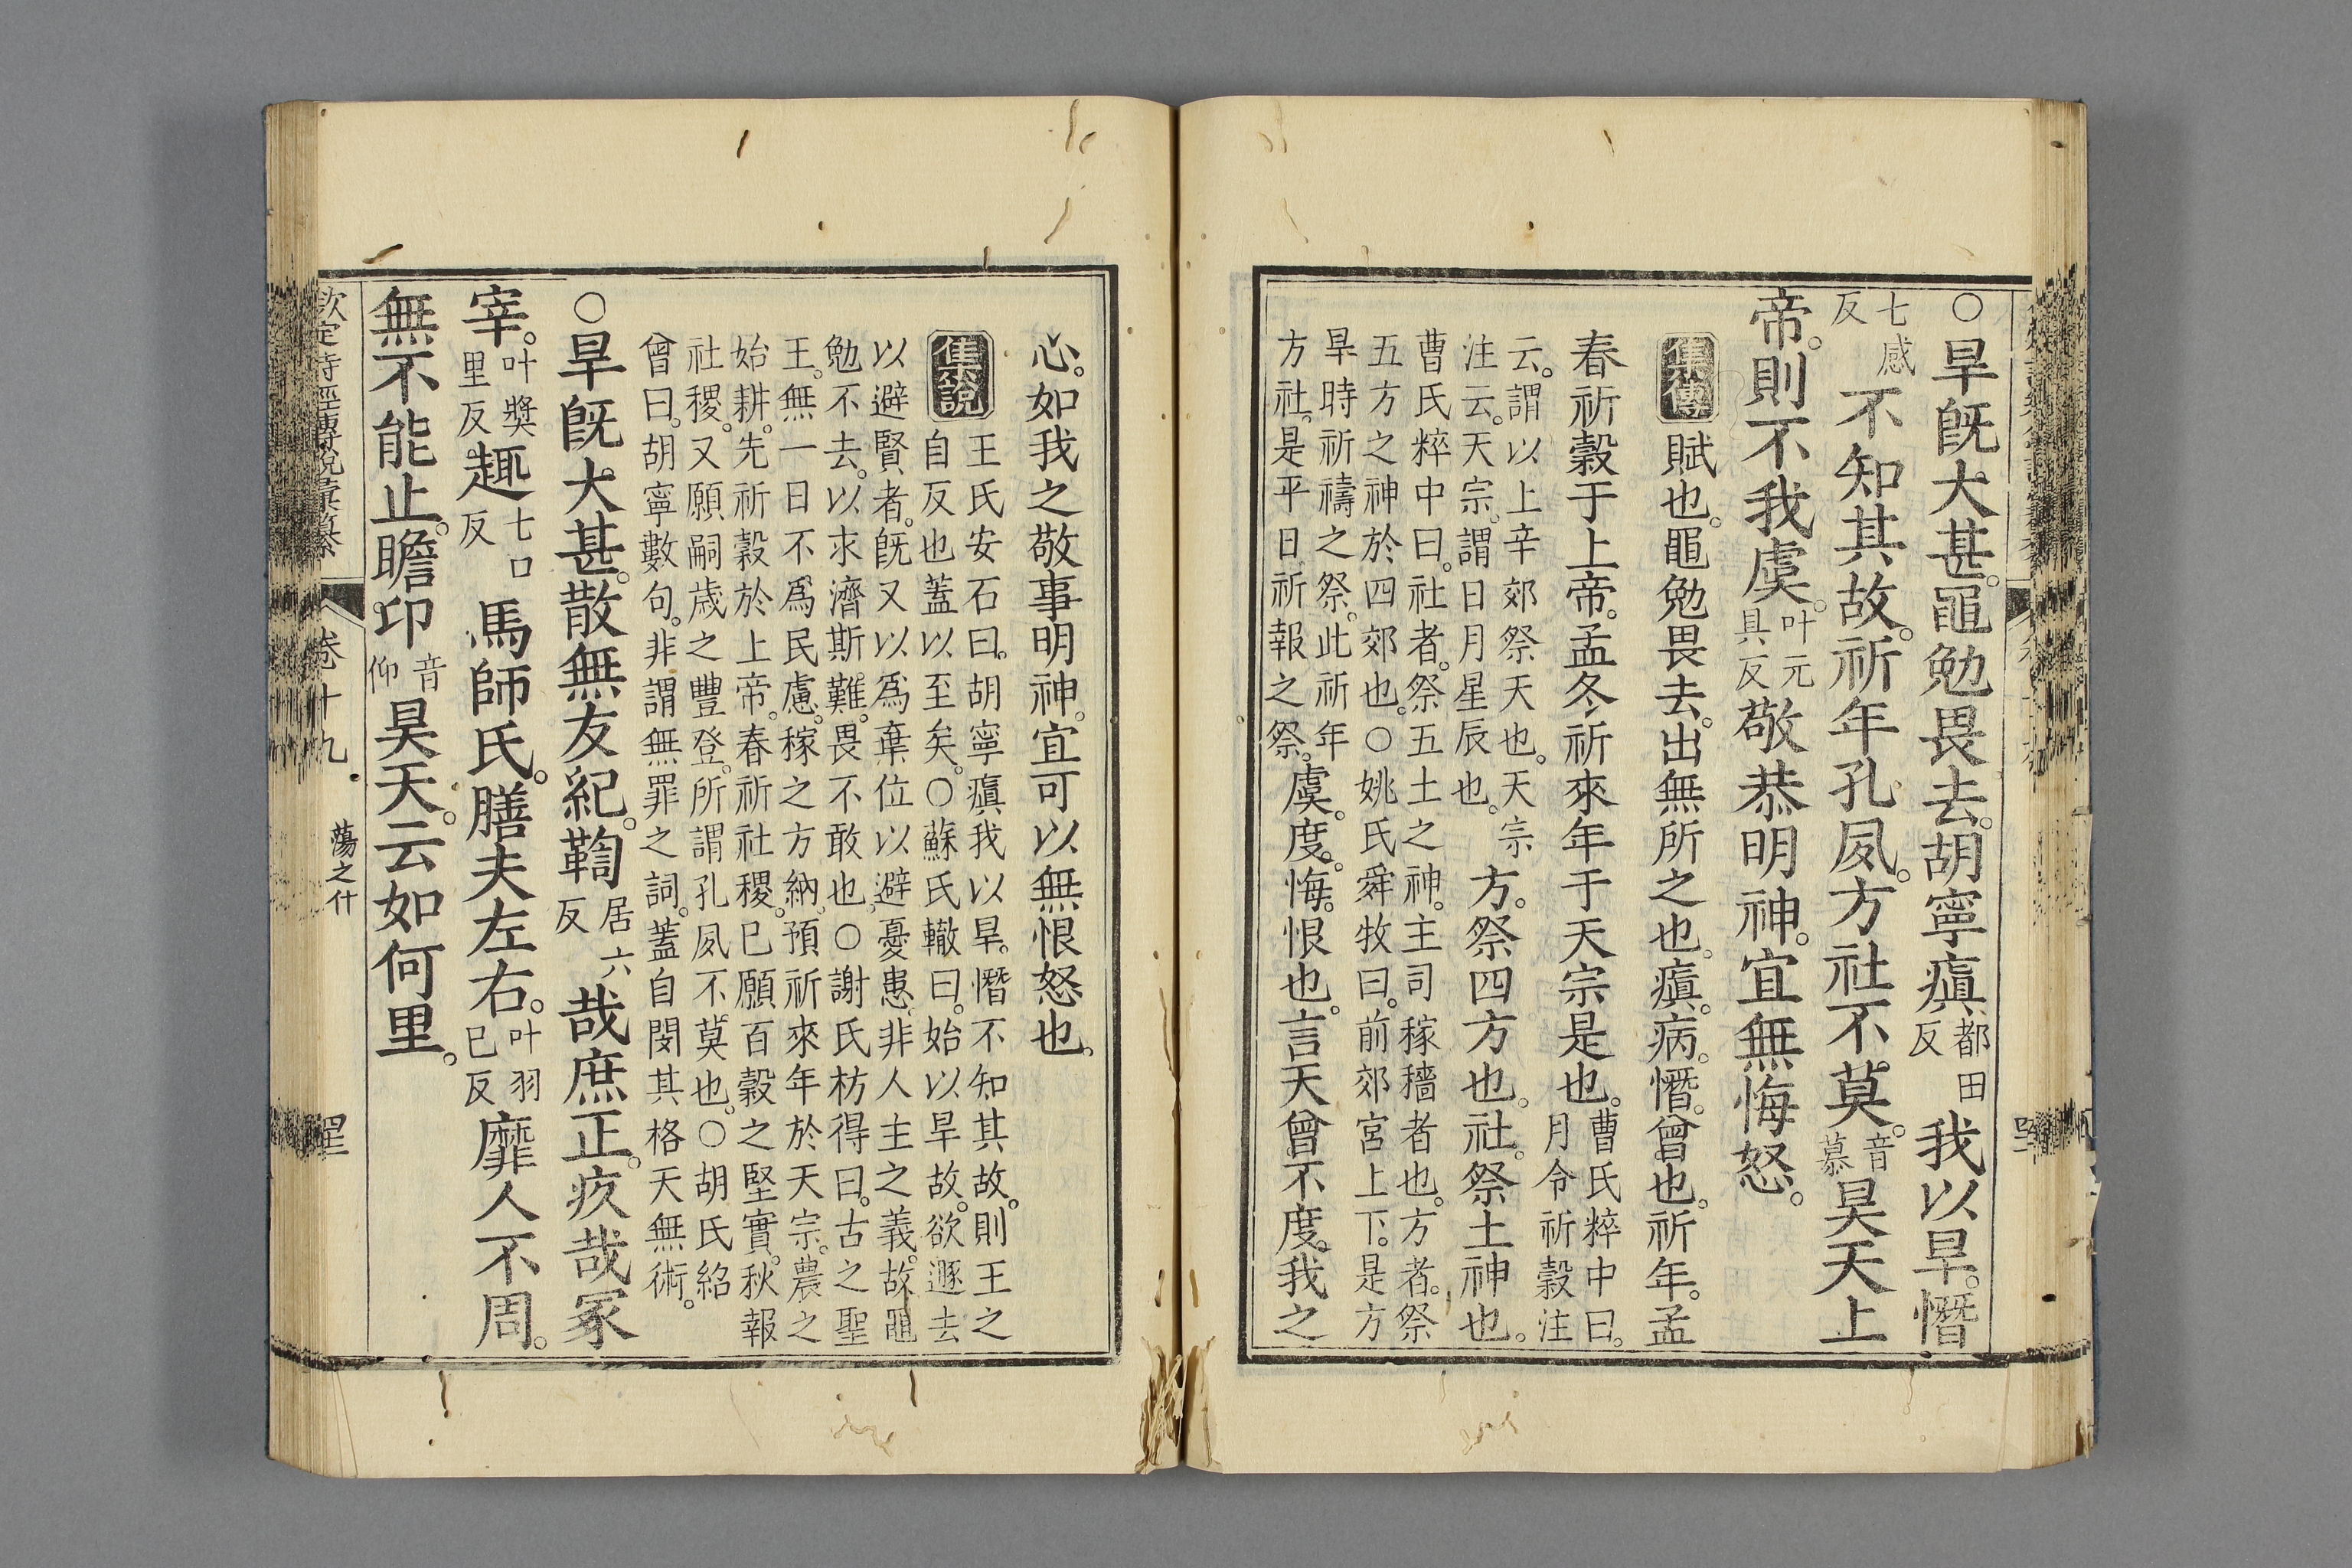 ○旱旣大甚。黽勉畏去。胡寧瘨都田反我以旱。憯
七感反不知其故。祈年孔夙。方社不莫。音慕昊天上
帝。則不我虞。叶元具反敬恭明神。宜無悔怒。
集傳 賦也。黽勉畏去。出無所之也。瘨。病。憯。曾也。祈年。孟
春祈穀于上帝。孟冬祈來年于天宗是也。曹氏粹中曰。月令祈穀注
云。謂以上辛郊祭天也。天宗注云。天宗。謂日月星辰也。方。祭四方也。社。祭土神也。
曹氏粹中曰。社者。祭五土之神。主司稼穡者也。方者。祭
五方之神於四郊也。○姚氏舜牧曰。前郊宮上下。是方
旱時祈禱之祭。此祈年
方社。是平日祈報之祭。虞。度。悔。恨也。言天曾不度。我之
心。如我之敬事明神。宜可以無恨怒也。
集說 王氏安石曰。胡寧瘨我以旱。憯不知其故。則王之
自反也蓋以至矣。○蘇氏轍曰。始以旱故。欲遯去
以避賢者。旣又以爲棄位以避憂患。非人主之義。故黽
勉不去。以求濟斯難。畏不敢也。○謝氏枋得曰。古之聖
王。無一日不爲民慮。稼之方納。預祈來年於天宗。農之
始耕。先祈穀於上帝。春祈社稷。已願百穀之堅實。秋報
社稷。又願嗣歲之豐登。所謂孔夙不莫也。○胡氏紹
曾曰。胡寧數句。非謂無罪之詞。蓋自閔其格天無術。
○旱旣大甚。散無友紀。鞫居六反哉庶正。疚哉冢
宰。叶獎里反趣七口反馬師氏。膳夫左右。叶羽已反靡人不周。
無不能止。瞻卬音仰昊天。云如何里。
欽定詩經傳說彙纂
卷十九
蕩之什